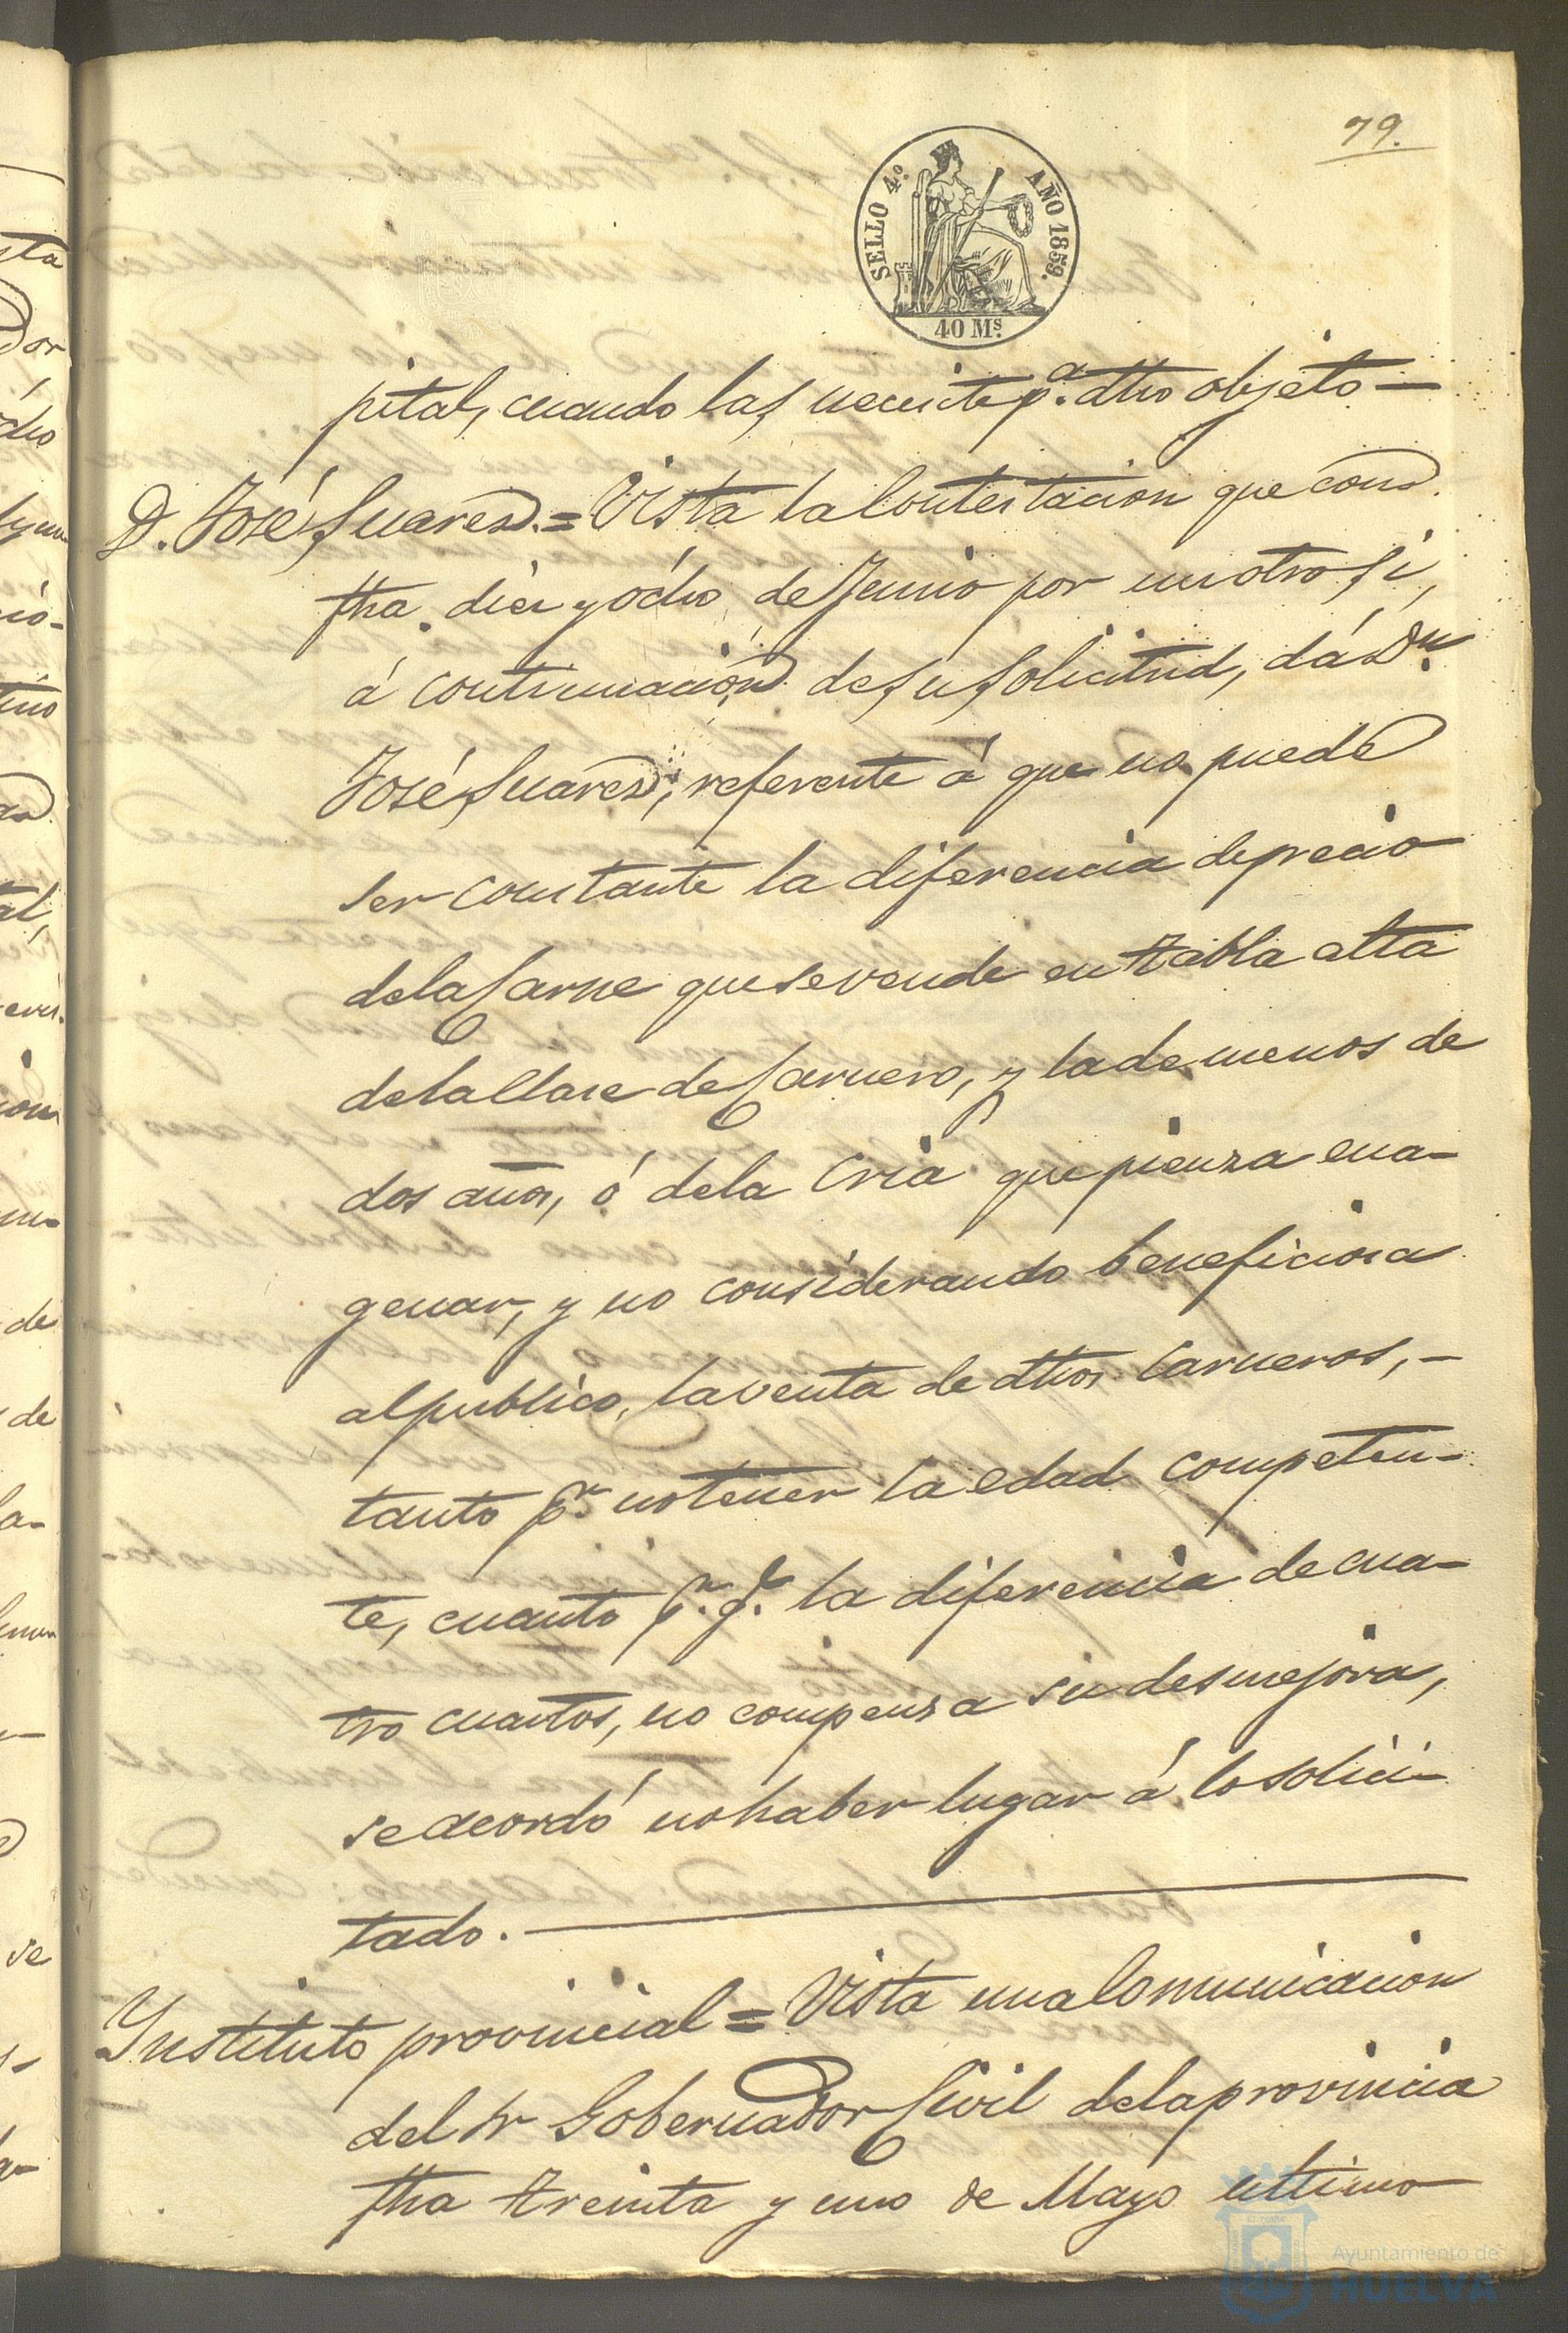 79.
SELLO 4.º AÑO 1859.
40 Ms.
pital, cuando las necesite pª. dho objeto—
D. José Suarez.= Vista la Contestacion que con
fha. diez y ocho de Junio por un otro si,
á continuación de su solicitud, dá Dn.
José Suarez, referente á que no puede
ser constante la diferencia de precio
de la Carne que se vende en tabla alta
de la Clase de Carnero, y la de menos de
dos años, ó de la Cria que pienza ena-
genar, y no considerando beneficiosa
al publico, la venta de dhos Carneros,—
tanto pr. no tener la edad competen-
te, cuanto pr. q.e la diferencia de cua-
tro cuartos, no compensa su desmejora,
se acordó no haber lugar á lo solici-
tado.—
Ynstituto provincial= Vista una Comunicacion
del Sr Gobernador Civil de la provincia
fha treinta y uno de Mayo ultimo
Ayuntamiento de
HUELVA